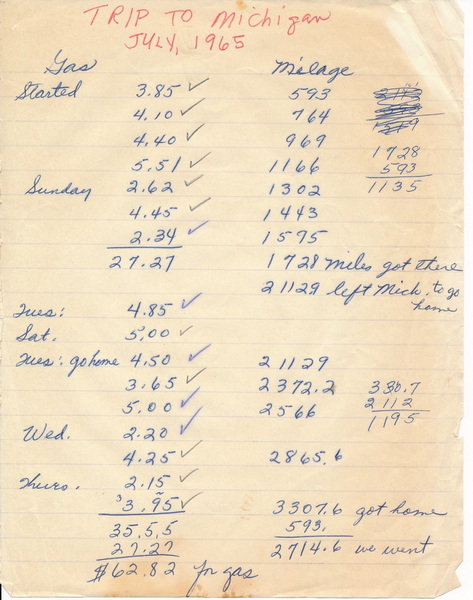 TRIP TO Michigan
JULY, 1965
Gas Milage
Started 3.85 ✓ 593
4.10 ✓ 764
4.40 ✓ 969
5.51 ✓ 1166 1728
Sunday 2.62 ✓ 1302 593
4.45 ✓ 1443 1135
2.34 ✓ 1595
27.27 1728 miles got there
21129 left Mich. to go home
Tues: 4.85 ✓
Sat. 5.00 ✓
Tues: go home 4.50 ✓ 21129
3.65 ✓ 2372.2 330.7
5.00 ✓ 2566 2112
Wed. 2.20 ✓ 1195
4.25 ✓ 2865.6
Thurs. 2.15 ✓
3.95 ✓ 3307.6 got home
35.5.5 593.
27.27 2714.6 we went
$62.82 for gas